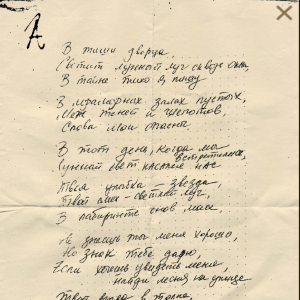 А
В тиши дворца
Светит лунный луч сквозь окна,
В тайне тихо я пишу
В мраморных залах пустых,
Меж теней и шепотов,
Слова мои опасны
В тот день, когда мы
встретились,
Лунный свет касался нас
Твоя улыбка – звезда,
Твой смех – светлый луч,
В лабиринте снов моих
Не знаешь ты меня хорошо,
Но знак тебе дарю,
Если хочешь увидеть меня
найди меня на улице